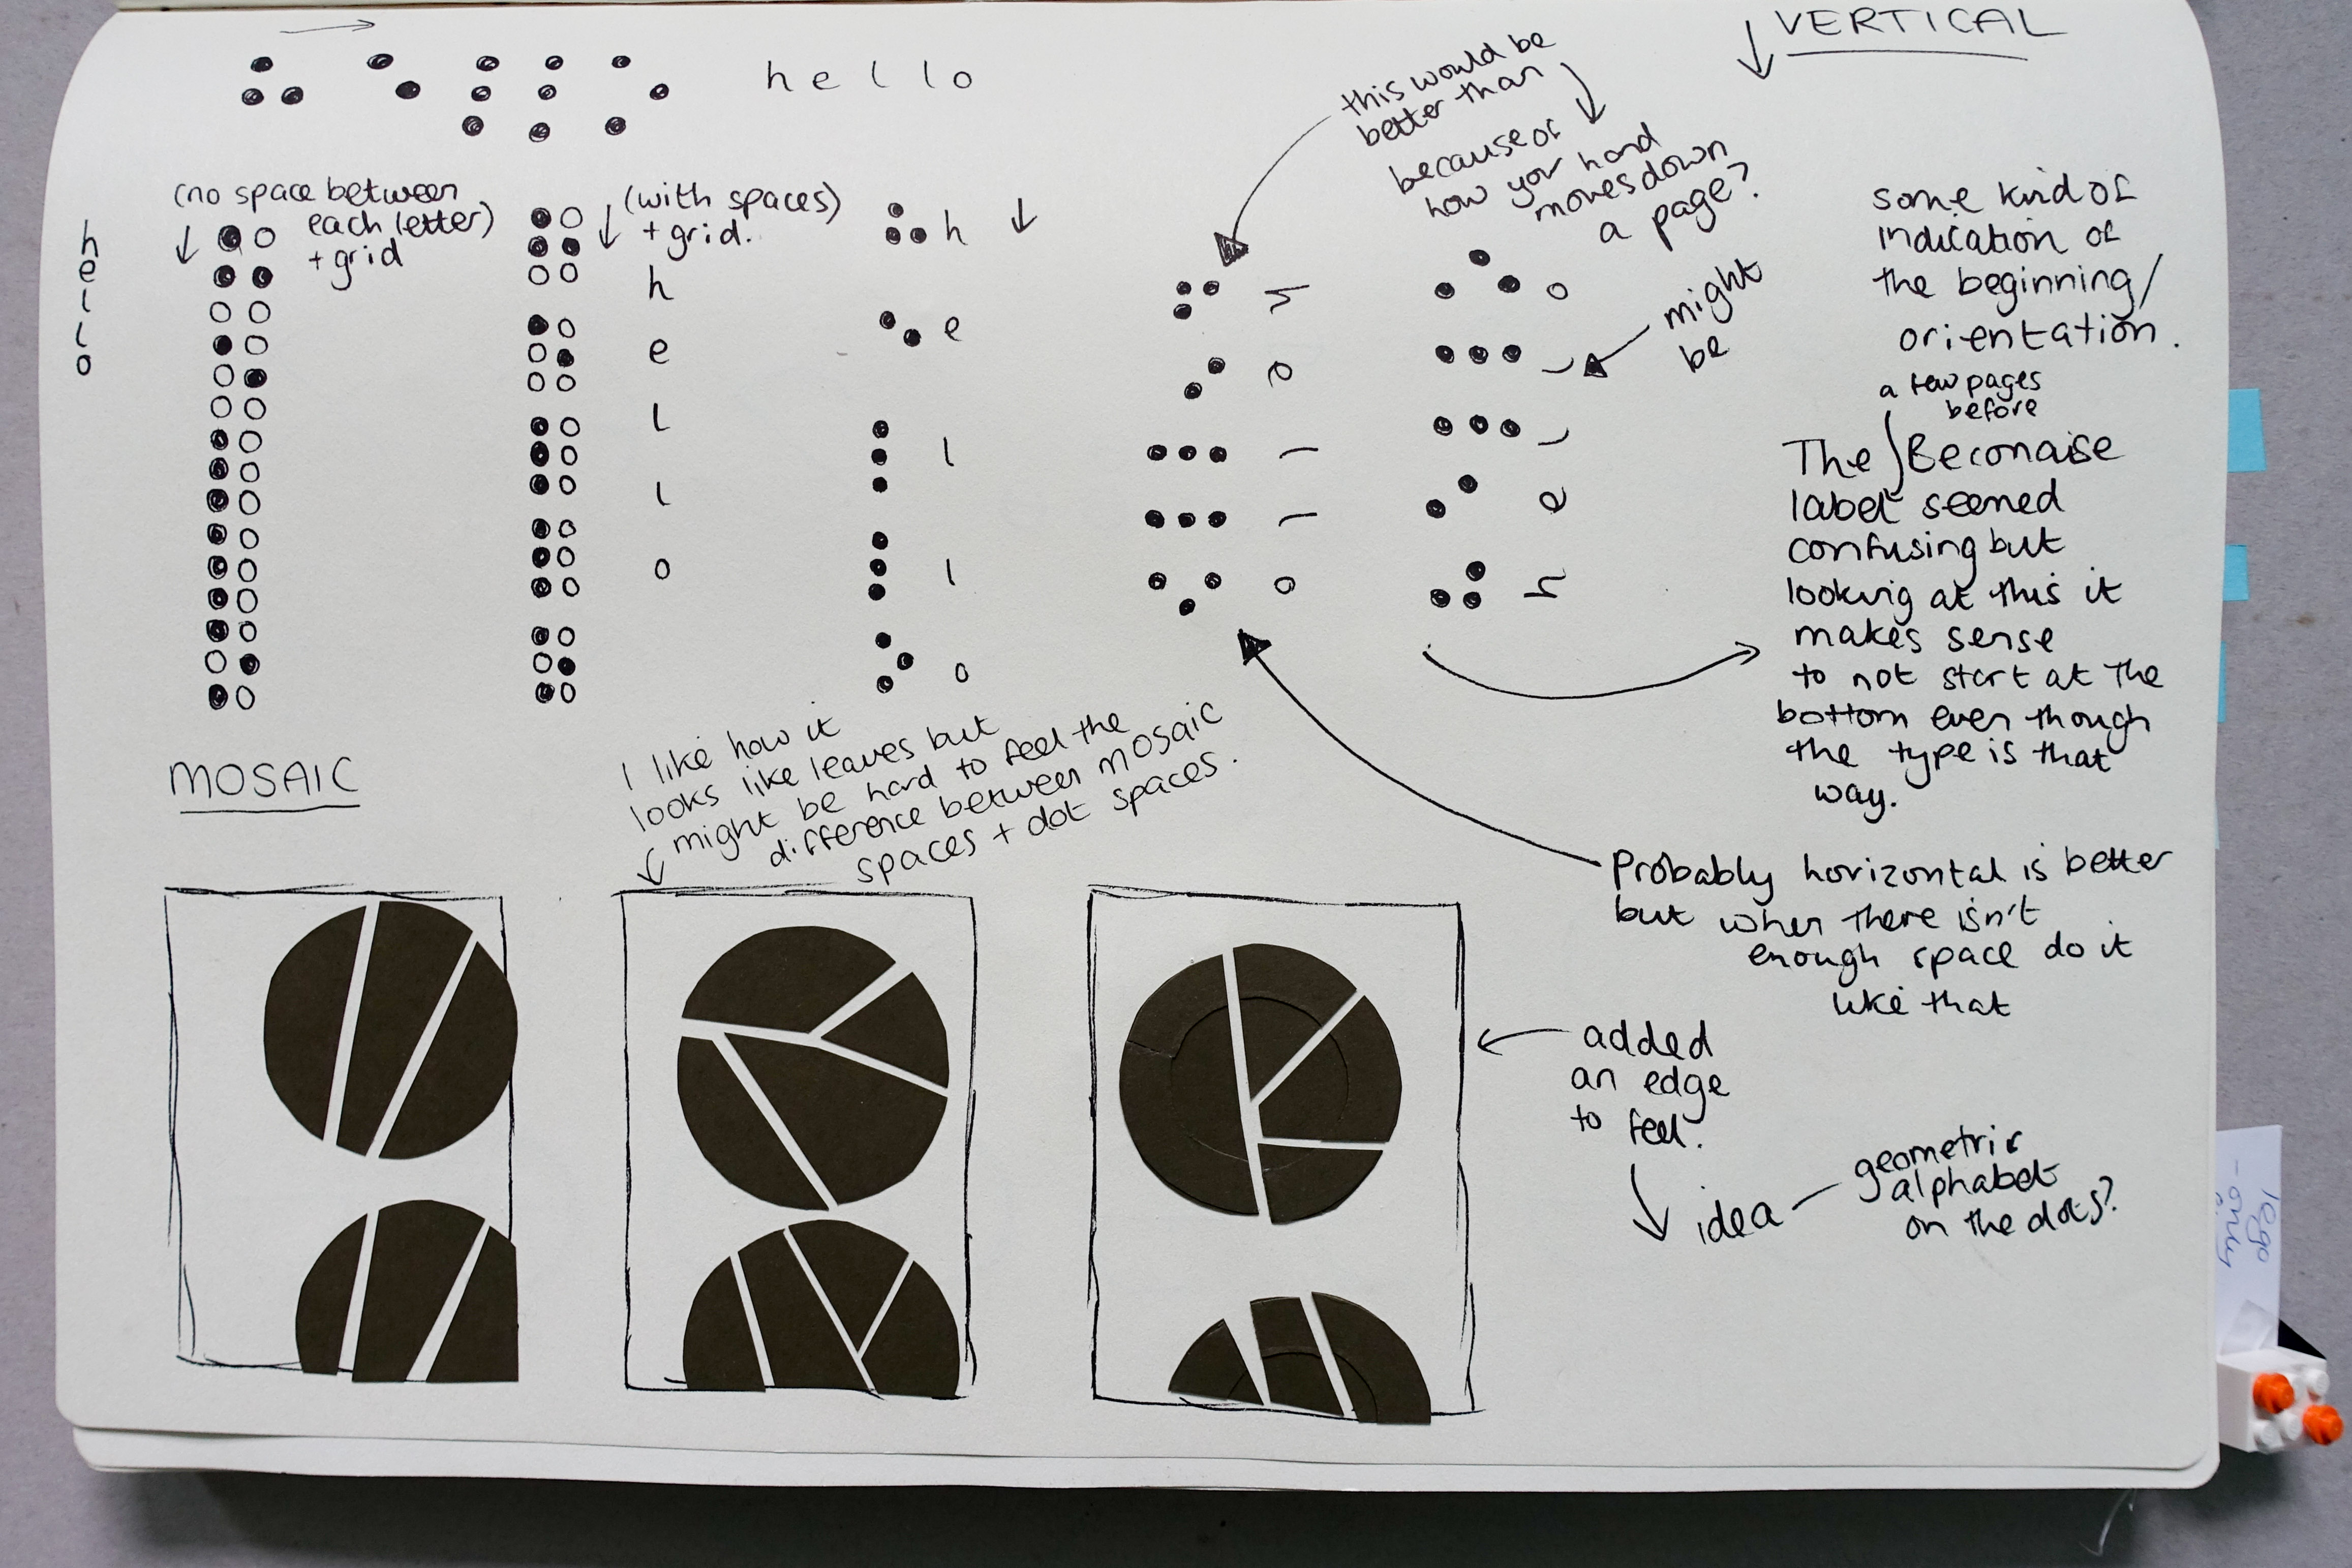 h e l l o
VERTICAL
this would be
better than
because of
how your hand
moves down
a page?
(no space between
each letter)
+ grid
(with spaces)
+ grid.
h
e
l
l
o
h
e
l
l
o
h
e
l
l
o
h
e
l
l
o
o
l
l
e
h
might
be
some kind of
indication of
the beginning/
orientation.
a few pages
before
The Beconaise
label seemed
confusing but
looking at this it
makes sense
to not start at the
bottom even though
the type is that
way.
MOSAIC
I like how it
looks like leaves but
might be hard to feel the
difference between mosaic
spaces + dot spaces.
Probably horizontal is better
but when there isn't
enough space do it
like that
added
an edge
to feel.
idea — geometric
alphabet
on the dots?
lego
- only